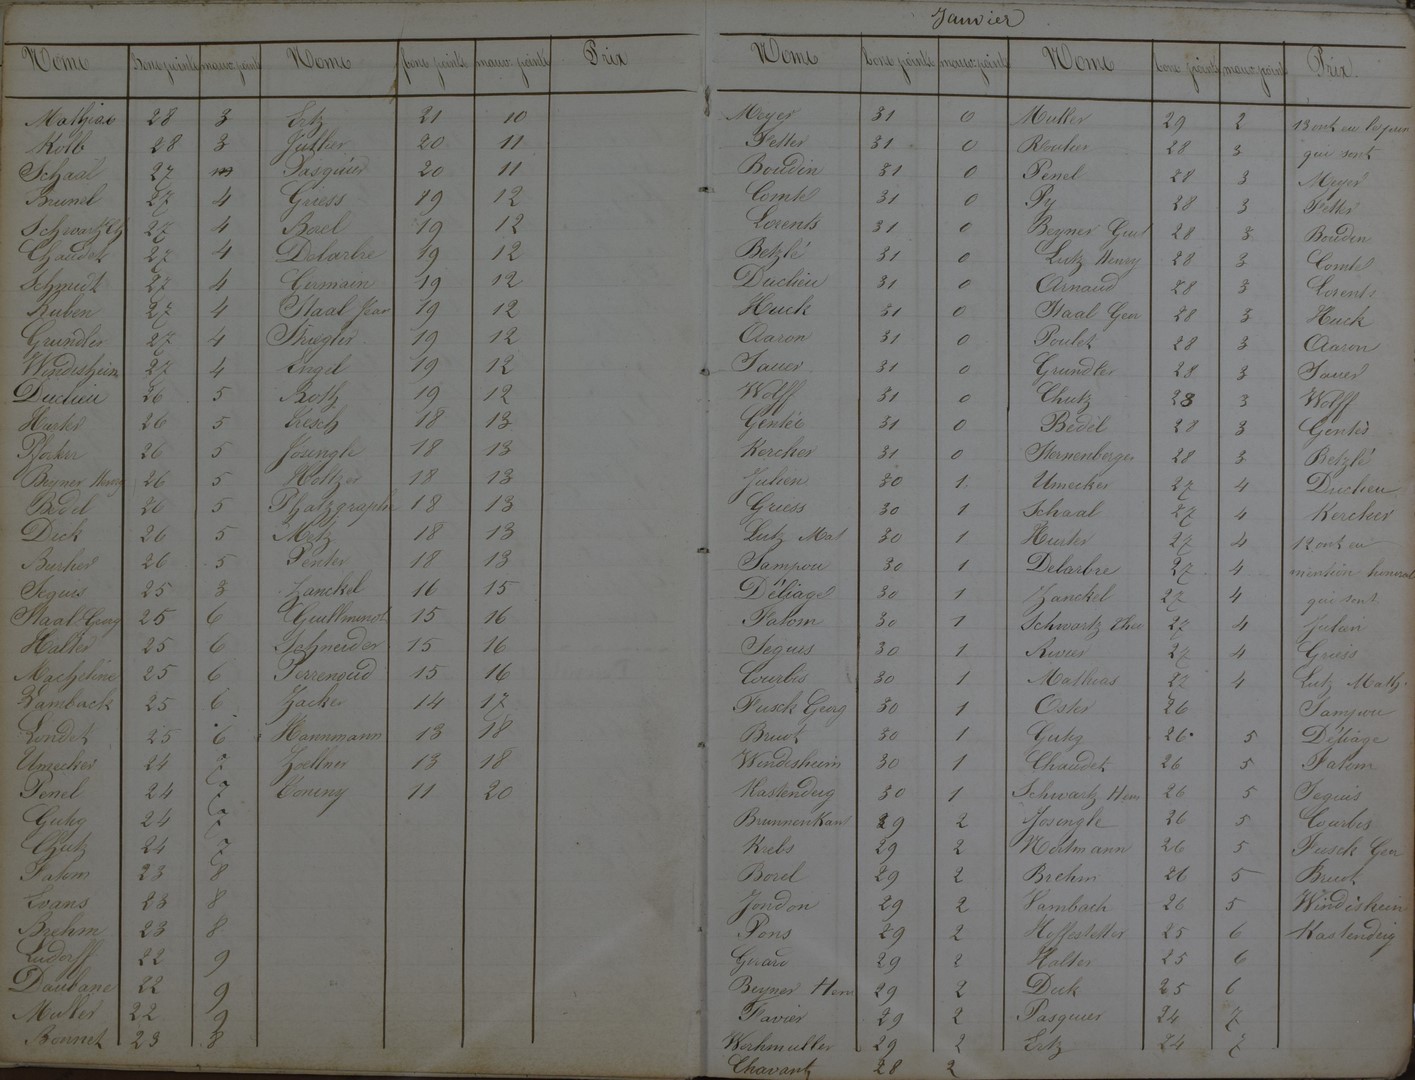 Noms bons points mauv. points Noms bons points mauv. points Prix
Mathias 28 3 Ertz 21 10
Kolb 28 3 Juillier 20 11
Schaal 27 Pasquier 20 11
Brunel 27 4 Griess 19 12
Schwartz 27 4 Borel 19 12
Chaudet 27 4 Delarbre 19 12
Schmidt 27 4 Germain 19 12
Ruben 27 4 Staal Jean 19 12
Grundler 27 4 19 12
Windisheim 27 4 Engel 19 12
Duchieu 26 5 Rotz 19 12
Hurter 26 5 18 13
26 5 Josingle 18 13
Beyner Henry 26 5 Holtzer 18 13
Bedel 26 5 Phalzgraphe 18 13
Dick 26 5 Metz 18 13
26 5 Penter 18 13
Seguis 25 3 Zanckel 16 15
Staal Georg 25 6 Guilleminot 15 16
Halter 25 6 Schneider 15 16
25 6 Perrenoud 15 16
Lambach 25 6 Zacker 14 17
Londet 25 6 Hannmann 13 18
Umecker 24 7 Zoellner 13 18
Penel 24 7 11 20
Guhg 24 7
Chutz 24 7
Fatom 23 8
Evans 23 8
Brehm 23 8
Ludorff 22 9
Daubane 22 9
Muller 22 9
Bonnet 23 8
Janvier
Noms bons points mauv. points Noms bons points mauv. points Prix.
Meyer 31 0 Muller 29 2 13 ont eu les prix
Fetter 31 0 28 3 qui sont
Boudin 31 0 Penel 28 3 Meyer
Comte 31 0 Py 28 3 Fetter
Lorents 31 0 Beyner Gust 28 3 Boudin
Betzlé 31 0 Lutz Henry 28 3 Comte
Duchieu 31 0 Arnaud 28 3 Lorents
Huck 31 0 Staal Geor 28 3 Huck
Aaron 31 0 Poulet 28 3 Aaron
Sauer 31 0 Grundler 28 3 Sauer
Wolff 31 0 Chutz 28 3 Wolff
Gentés 31 0 Bedel 28 3 Gentés
Kercher 31 0 Sternenberger 28 3 Betzlé
Julien 30 1 Umecker 27 4 Duchieu
Griess 30 1 Schaal 27 4 Kercher
Lutz Mat 30 1 Hurter 27 4 12 ont eu
Sampou 30 1 Delarbre 27 4 mention honorab
Déliage 30 1 Zanckel 27 4 qui sont
Fatom 30 1 Schwartz Theo 27 4 Julien
Seguis 30 1 Rivier 27 4 Griess
Courbis 30 1 Mathias 27 4 Lutz Math.
Fusck Georg 30 1 Oster 26 Sampou
Bruot 30 1 Guhg 26 5 Déliage
Windisheim 30 1 Chaudet 26 5 Fatom
Kastendeig 30 1 Schwartz Hen 26 5 Seguis
Brunnenkant 29 2 Josingle 26 5 Courbis
Krebs 29 2 26 5 Fusck Geor
Borel 29 2 Brehm 26 5 Bruot
Jondon 29 2 Lambach 26 5 Windisheim
Pons 29 2 Hoffestetter 25 6 Kastendeig
Gerard 29 2 Halter 25 6
Beyner Henr 29 2 Dick 25 6
Favier 29 2 Pasquier 24 7
Werhmuller 29 2 Ertz 24 7
Chavant 28 2